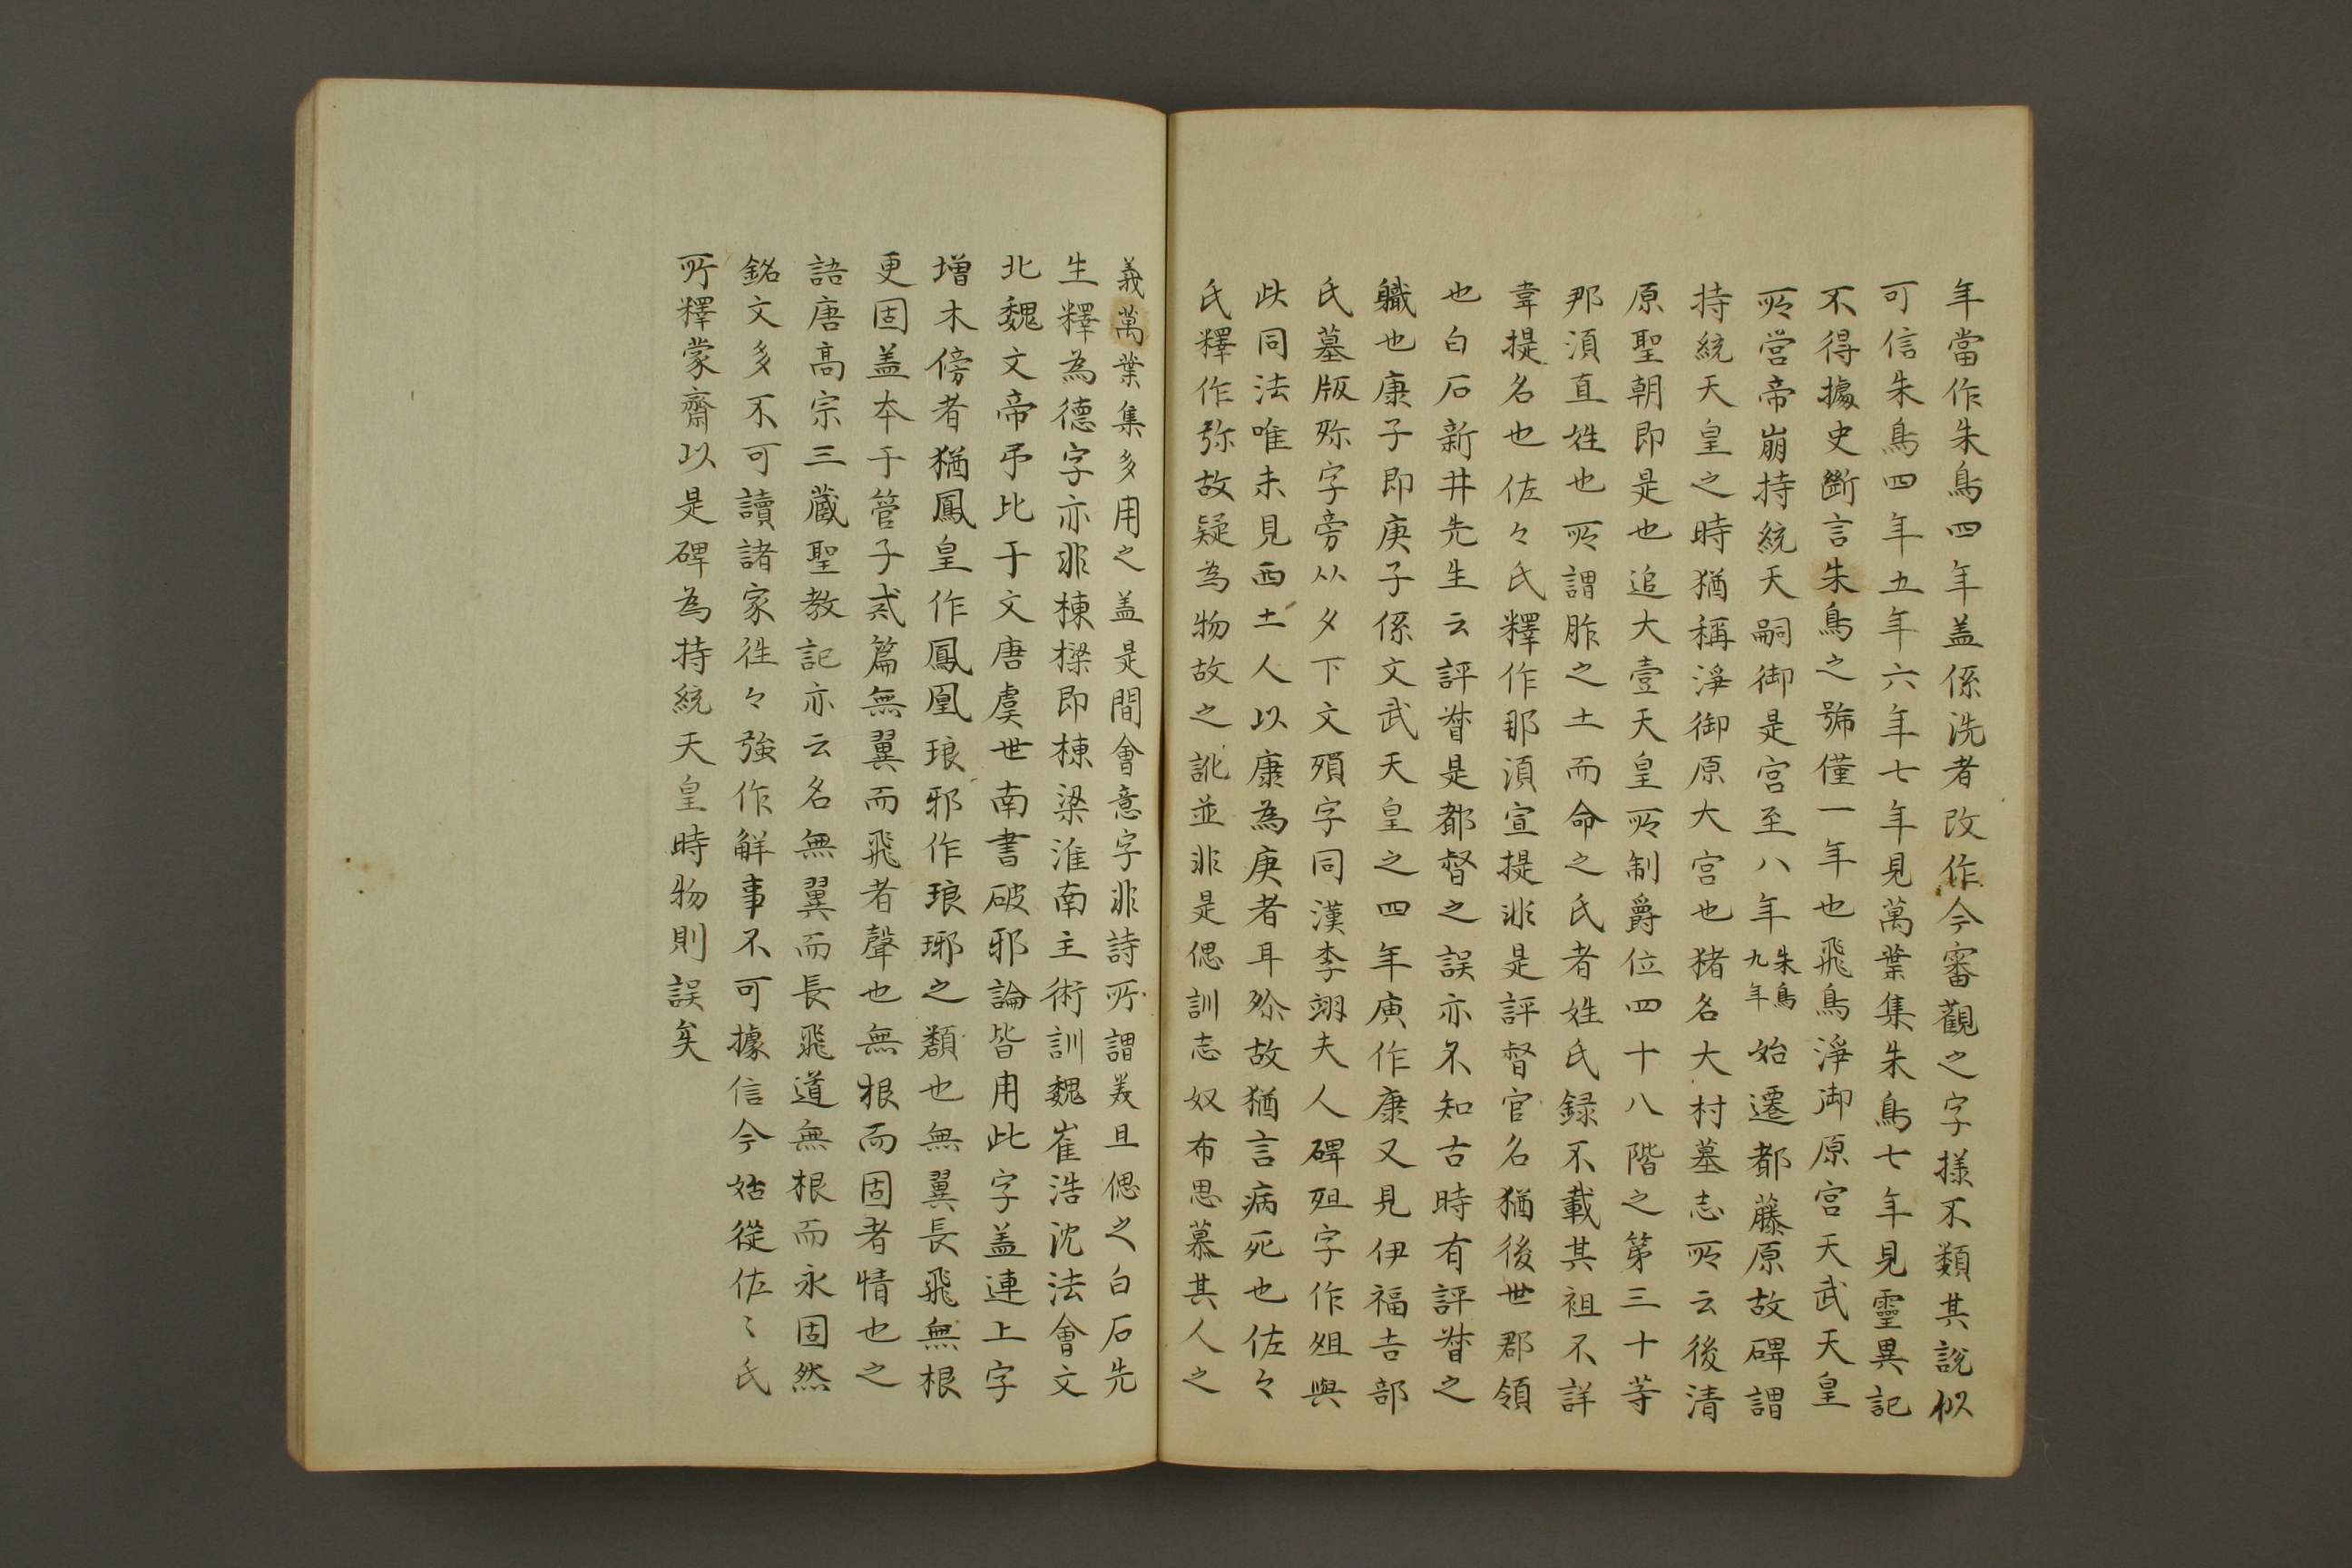 年當作朱鳥四年盖係洗者改作今審觀之字様不類其說似
可信朱鳥四年五年六年七年見萬葉集朱鳥七年見靈異記
不得據史斷言朱鳥之號僅一年也飛鳥淨御原宮天武天皇
所営帝崩持統天嗣御是宮至八年朱鳥九年始遷都藤原故碑謂
持統天皇之時猶稱淨御原大宮也猪名大村墓志所云後清
原聖朝即是也追大壹天皇所制爵位四十八階之第三十等
那湏直姓也所謂胙之土而命之氏者姓氏録不載其祖不詳
韋提名也佐々氏釋作那湏宣提非是評督官名猶後世郡領
也白石新井先生云評督是都督之誤亦不知古時有評督之
軄也康子即庚子係文武天皇之四年庚作康又見伊福吉部
氏墓版殄字旁从夕下文殞字同漢李翊夫人碑殂字作姐與
此同法唯未見西土人以康為庚者耳殄故猶言病死也佐々
氏釋作弥故疑為物故之訛並非是偲訓志奴布思慕其人之
義萬葉集多用之盖是間會意字非詩所謂美且偲之白石先
生釋為德字亦非棟樑即棟梁淮南主術訓魏崔浩沈法會文
北魏文帝弔比干文唐虞世南書破邪論皆用此字盖連上字
増木傍者猶鳳皇作鳳凰琅邪作琅琊之類也無翼長飛無根
更固盖本于管子戒篇無翼而飛者聲也無根而固者情也之
語唐高宗三藏聖教記亦云名無翼而長飛道無根而永固然
銘文多不可讀諸家徃々強作解事不可據信今姑從佐〻氏
所釋蒙齋以是碑為持統天皇時物則誤矣